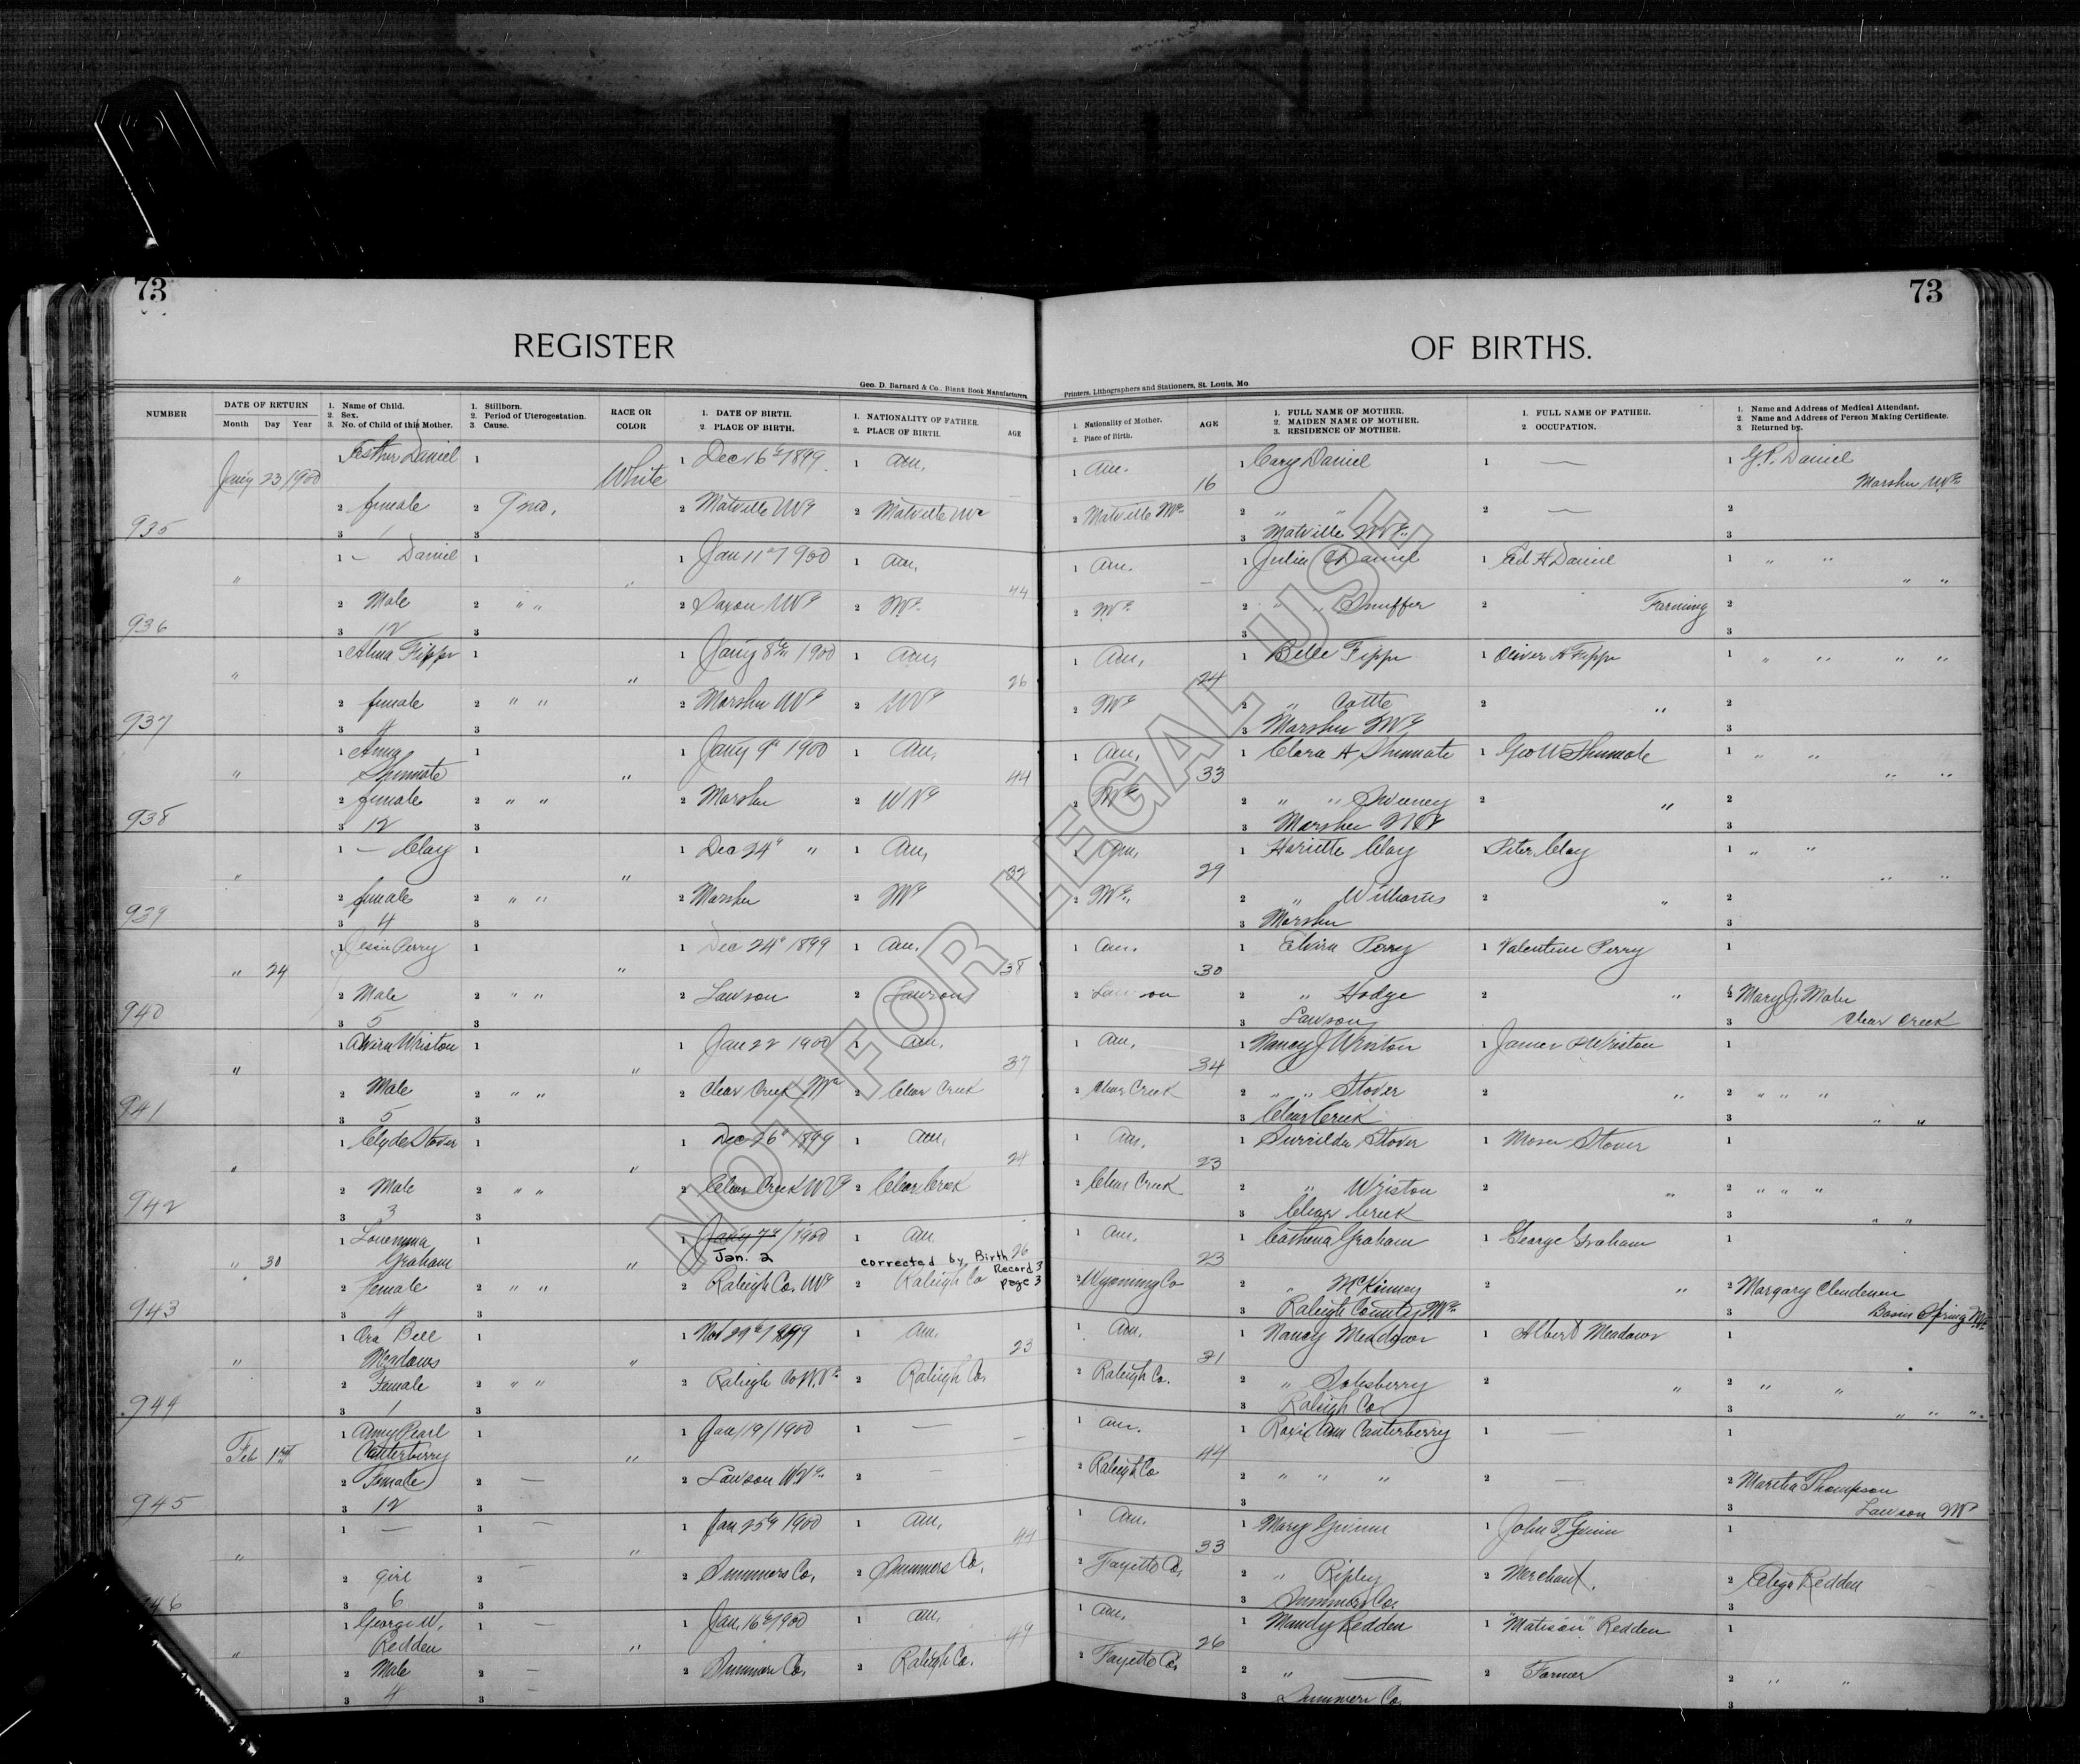 73
73
REGISTER
OF BIRTHS.
Geo. D. Barnard & Co., Blank Book Manufacturers,
Printers, Lithographers and Stationers, St. Louis, Mo.
NUMBER
DATE OF RETURN
Month Day Year
1. Name of Child.
2. Sex.
3. No. of Child of this Mother.
1. Stillborn.
2. Period of Uterogestation.
3. Cause.
RACE OR
COLOR
1. DATE OF BIRTH.
2. PLACE OF BIRTH.
1. NATIONALITY OF FATHER.
2. PLACE OF BIRTH.
AGE
1. Nationality of Mother.
2. Place of Birth.
AGE
1. FULL NAME OF MOTHER.
2. MAIDEN NAME OF MOTHER.
3. RESIDENCE OF MOTHER.
1. FULL NAME OF FATHER.
2. OCCUPATION.
1. Name and Address of Medical Attendant.
2. Name and Address of Person Making Certificate.
3. Returned by.
1 Daniel 1 1 Dec 16 1899 1 am. 1 am. 1 Cary Daniel 1 — 1 G.P. Daniel
23 1900 White 16 Marshu
935 2 female 2 9 mo. 2 Matville 2 Matville 2 Matville 2 " " 2 — 2
3 1 3 3 Matville 3
1 — Daniel 1 1 Jan 11 1900 1 am. 1 am. 1 Julia Daniel 1 H Daniel 1 " "
" " 44 — " "
936 2 Male 2 " " 2 Saxon 2 2 2 " " Snuffer 2 Farming 2
3 12 3 3 3
1 Alma Fipps 1 1 8 1900 1 am. 1 am. 1 Belle Fipps 1 Oliver Fipps 1 " " " "
" " 26 24
937 2 female 2 " " 2 Marshu 2 2 2 " Cottle 2 " 2
3 4 3 3 Marshu 3
1 Anna Shumate 1 1 9 1900 1 am. 1 am. 1 Clara A Shumate 1 Geo W Shumate 1 " "
" " 44 33 " "
938 2 female 2 " " 2 Marshu 2 2 2 " " Sweeney 2 " 2
3 12 3 3 Marshu 3
1 — Clay 1 1 Dec 24 " 1 am. 1 am. 1 Clay Peter Clay 1 " "
" " 32 29 " "
939 2 female 2 " " 2 Marshu 2 2 2 " Williams 2 " 2
3 4 3 3 Marshu 3
1 Perry 1 1 Dec 24 1899 1 am. 1 am. 1 Elvira Perry 1 Valentine Perry 1
" 24 " 38 30
940 2 Male 2 " " 2 Lawson 2 Lawson 2 Lawson 2 " Hodge 2 " 2 Mary J.
3 5 3 3 Lawson 3 Clear Creek
1 Wriston 1 1 Jan 22 1900 1 am. 1 am. 1 Nancy J Wriston 1 James Wriston 1
" " 37 34
941 2 Male 2 " " 2 Clear Creek 2 Clear Creek 2 Clear Creek 2 " " Stover 2 " 2 " " "
3 5 3 3 Clear Creek 3 " "
1 Clyde Stover 1 1 Dec 26 1899 1 am. 1 am. 1 Stover 1 Moses Stover 1
" " 24 23
942 2 Male 2 " " 2 Clear Creek 2 Clear Creek 2 Clear Creek 2 " Wriston 2 " 2 " " "
3 3 3 3 Clear Creek 3 " "
1 Louemma Graham 1 1 1900 1 am 1 am. 1 Graham 1 George Graham 1
Jan. 2 corrected by Birth Record 3 page 3
" 30 " 26 23
943 2 Female 2 " " 2 Raleigh Co. 2 Raleigh Co 2 Wyoming Co 2 " McKinney 2 " 2 Margary Clendenen
3 4 3 3 Raleigh County 3 Spring
1 Ora Bell Meadows 1 1 Nov 29 1899 1 am. 1 am. 1 Nancy Meadows 1 Albert Meadows 1
" " 23 21
944 2 Female 2 " " 2 Raleigh Co 2 Raleigh Co. 2 Raleigh Co. 2 " 2 " 2 " "
3 1 3 3 Raleigh Co 3 " " "
1 Amy Pearl Canterberry 1 1 Jan 19/1900 1 — 1 am. 1 Ann Canterberry 1 — 1
Feb 1st " — 44
945 2 Female 2 — 2 Lawson 2 — 2 Raleigh Co 2 " " " 2 — 2 Martha Thompson
3 12 3 3 3 Lawson
1 — 1 — 1 Jan 25 1900 1 am. 1 am. 1 Mary Gwinn 1 John T Gwinn 1
" " 44 33
46 2 girl 2 — 2 Summers Co. 2 Summers Co. 2 Fayette Co. 2 " Ripley 2 Merchant. 2 Redden
3 6 3 3 Summers Co. 3
1 George W. Redden 1 — 1 Jan. 16 1900 1 am. 1 am. 1 Mandy Redden 1 "Matison" Redden 1
" " 49 26
2 Male 2 — 2 Summers Co. 2 Raleigh Co. 2 Fayette Co. 2 " — 2 Farmer 2 " "
3 4 3 — 3 Summers Co. 3
NOT FOR LEGAL USE